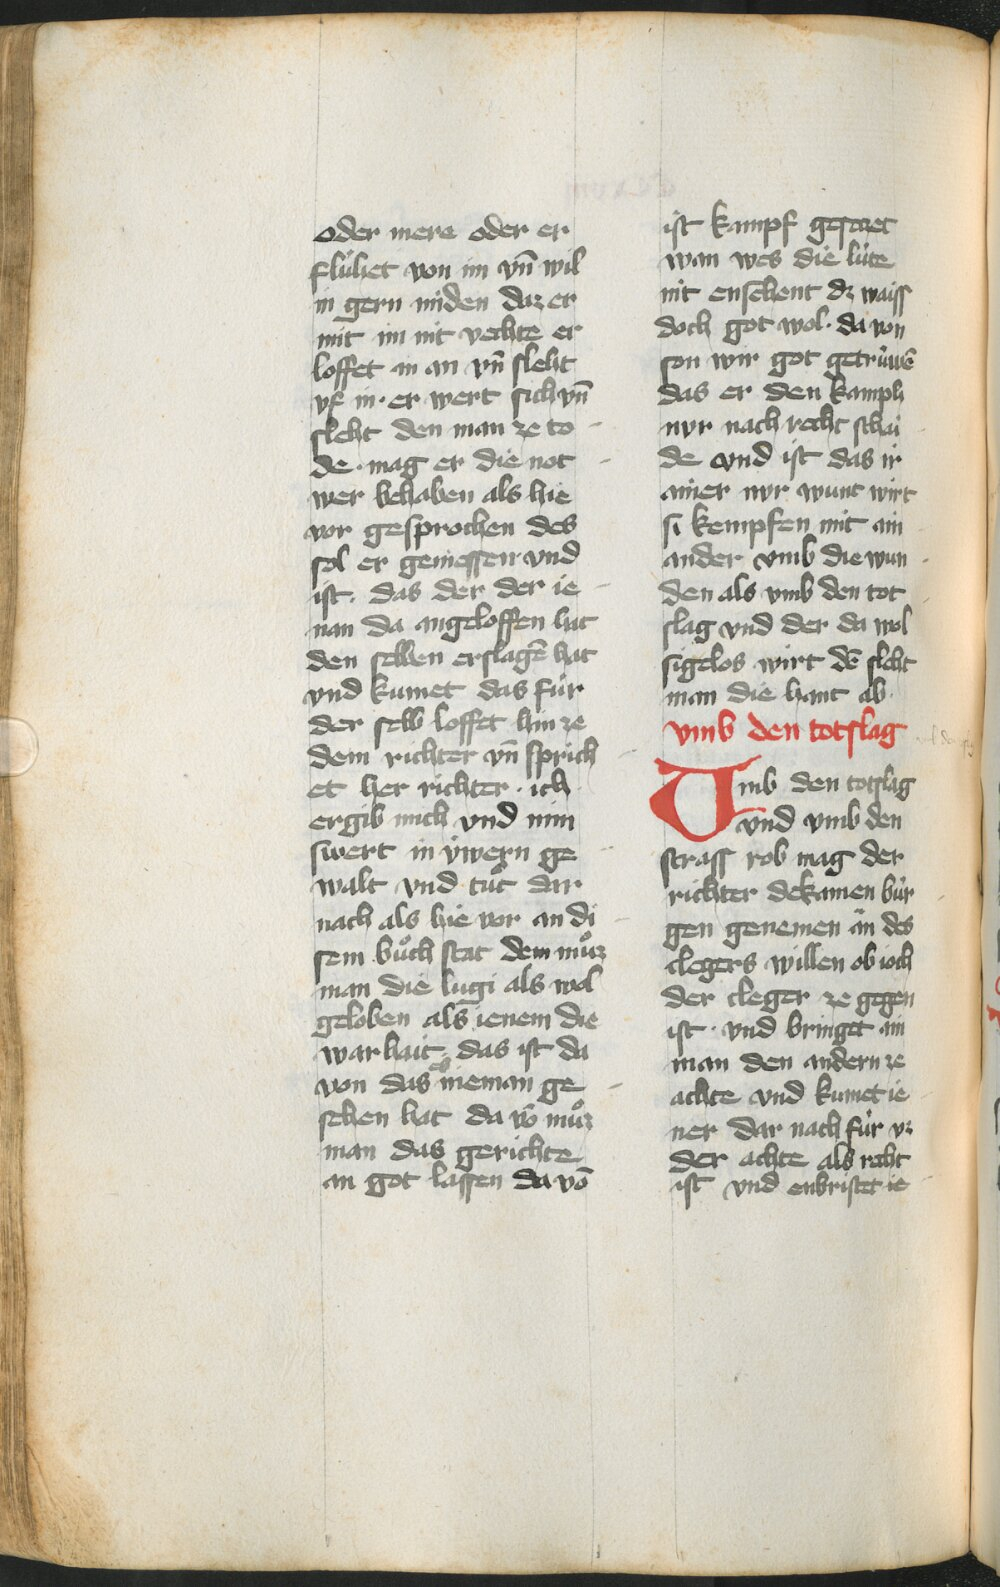 oder mere oder er
flúhet von im vn̄ wil
in gern miden daz er
mit im nit vechte er
loffet in an vn̄ sleht
vf in · er wert sich vn̄
sleht den man ze to
de · mag er die not
wer behaben als hie
vor gesprochen des
sol er geniessen vnd
ist · das der der ie
nan da angeloffen hat
den selben erslagē hat
vnd kumet das fúr
der selb loffet hin ze
dem richter vn̄ sprich
et her richter · ich
ergib mich vnd min
swert in v́wern ge
walt vnd tuͦt dar
nach als hie vor an di
sem buͦch stat dem muͦz
man die lugi als wol
geloben als ienem die
warhait das ist da
von das es nieman ge
sehen hat da vō muͦz
man das gerichte
an got lassen da vō
ist kampf gesetzet
wan wes die lúte
nit ensehent dz waiss
doch got wol · da von
son wir got getrúwē
das er den kamph
nvr nach recht schai
de vnd ist das ir
ainer nvr wunt wirt
si kempfen mit ain
ander vmb die wun
den als vmb den tot
slag vnd der da wol
sigelos wirt dē sleht
man die hant ab ·
vmb den totslag
Umb den totslag
vnd vmb den
strass rob mag der
richter dekainen búr
gen genemen ân des
clegers willen ob ioch
der cleger ze gegen
ist · vnd bringet ain
man den andern ze
achte vnd kumet ie
ner dar nach fúr vz
der achte als recht
ist vnd enbristet ie